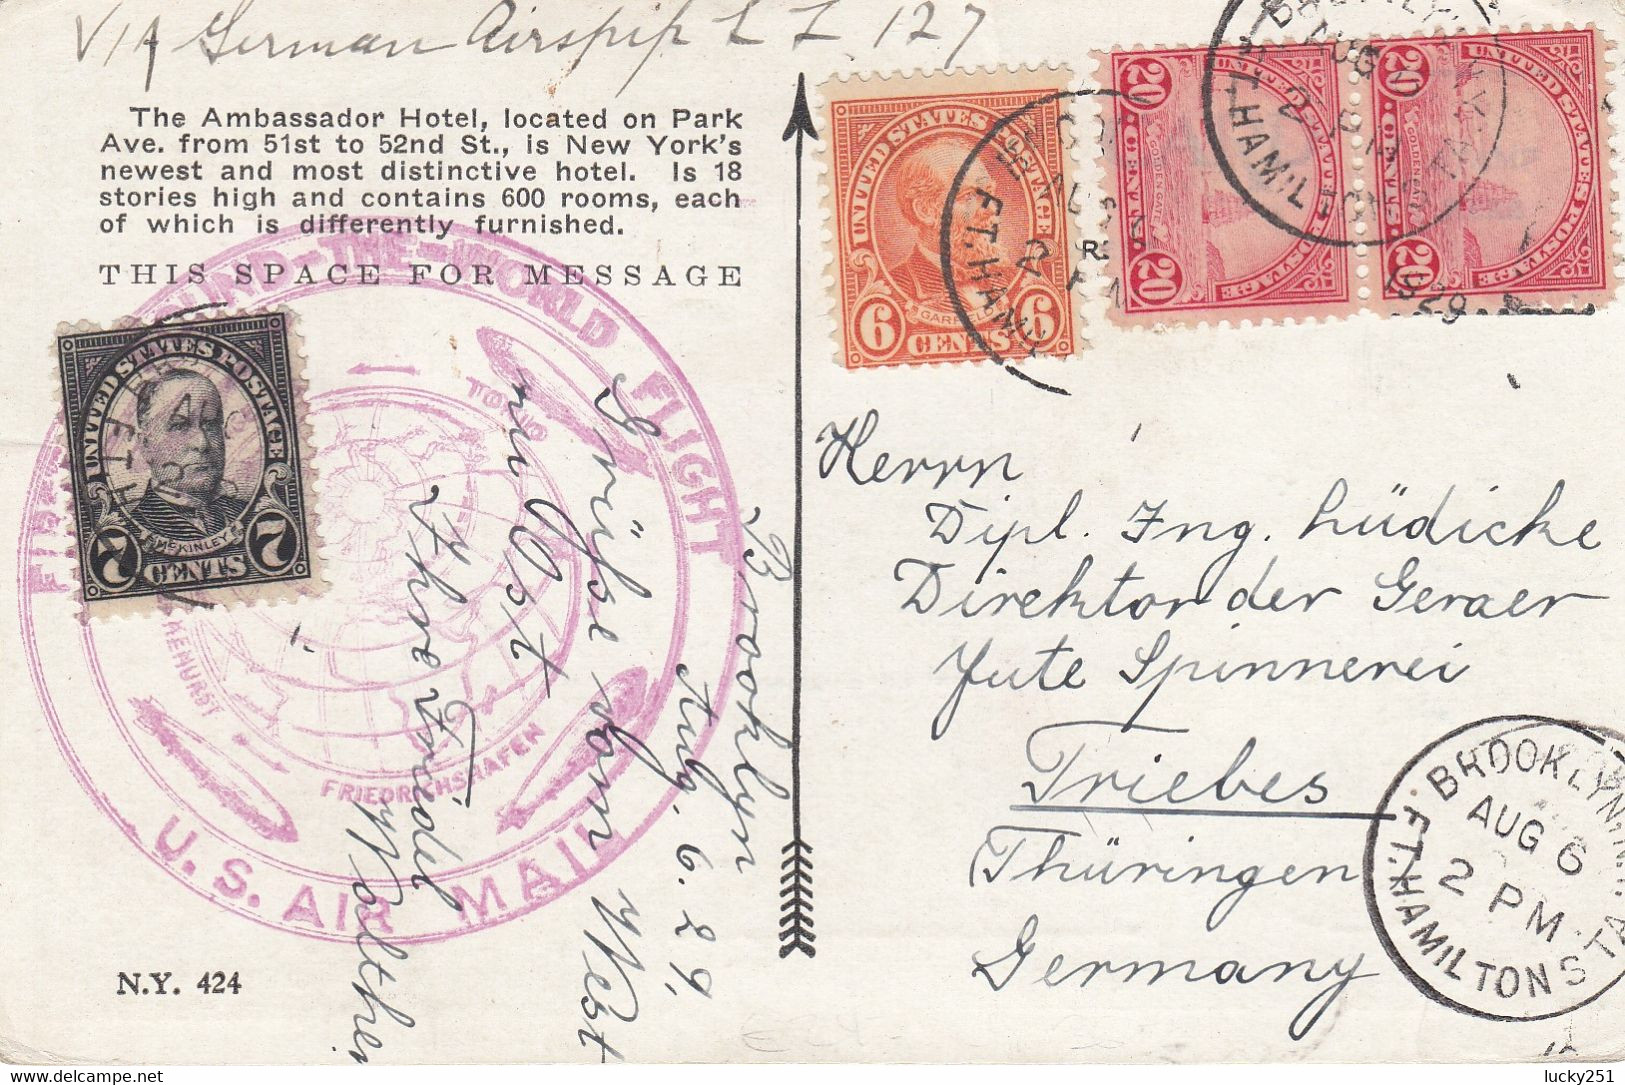 VIA German Airspip L Z 127
The Ambassador Hotel, located on Park
Ave. from 51st to 52nd St., is New York's
newest and most distinctive hotel. Is 18
stories high and contains 600 rooms, each
of which is differently furnished.
THIS SPACE FOR MESSAGE
ROUND-THE-WORLD FLIGHT
TOKIO
FRIEDRICHSHAFEN
U.S. AIR MAIL
UNITED STATES POSTAGE
McKINLEY
7 CENTS 7
Brooklyn
Aug. 6. 29.
Grüße vom West
nu Ost
Ihre Friedel
Walther
N.Y. 424
UNITED STATES POSTAGE
GARFIELD
6 CENTS 6
UNITED STATES POSTAGE
GOLDEN GATE
20 CENTS 20
UNITED STATES POSTAGE
GOLDEN GATE
20 CENTS 20
AUG
FT. HAMIL
1929
Herrn
Dipl. Ing. Lüdicke
Direktor der Geraer
Jute Spinnerei
Triebes
Thüringen
Germany
BROOKLYN, N.Y.
AUG 6
2 PM
FT. HAMILTON STA.
lucky251